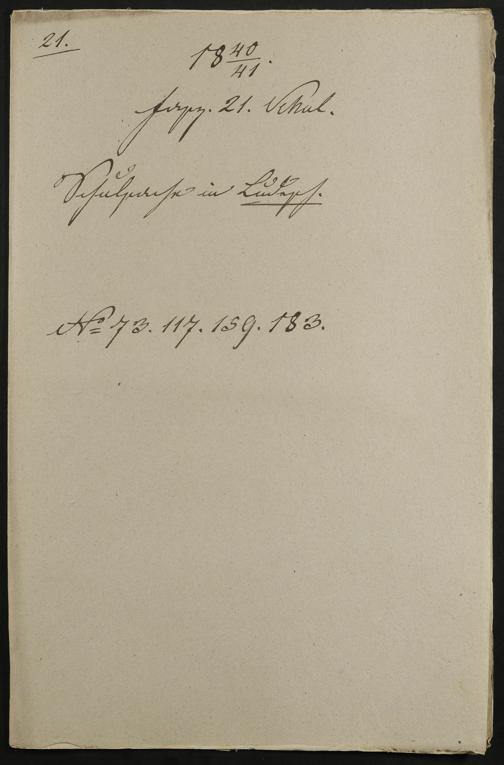 21.
18 40/41.
fasz. 21. Schul.
Schulsache in
No 73. 117. 159. 183.